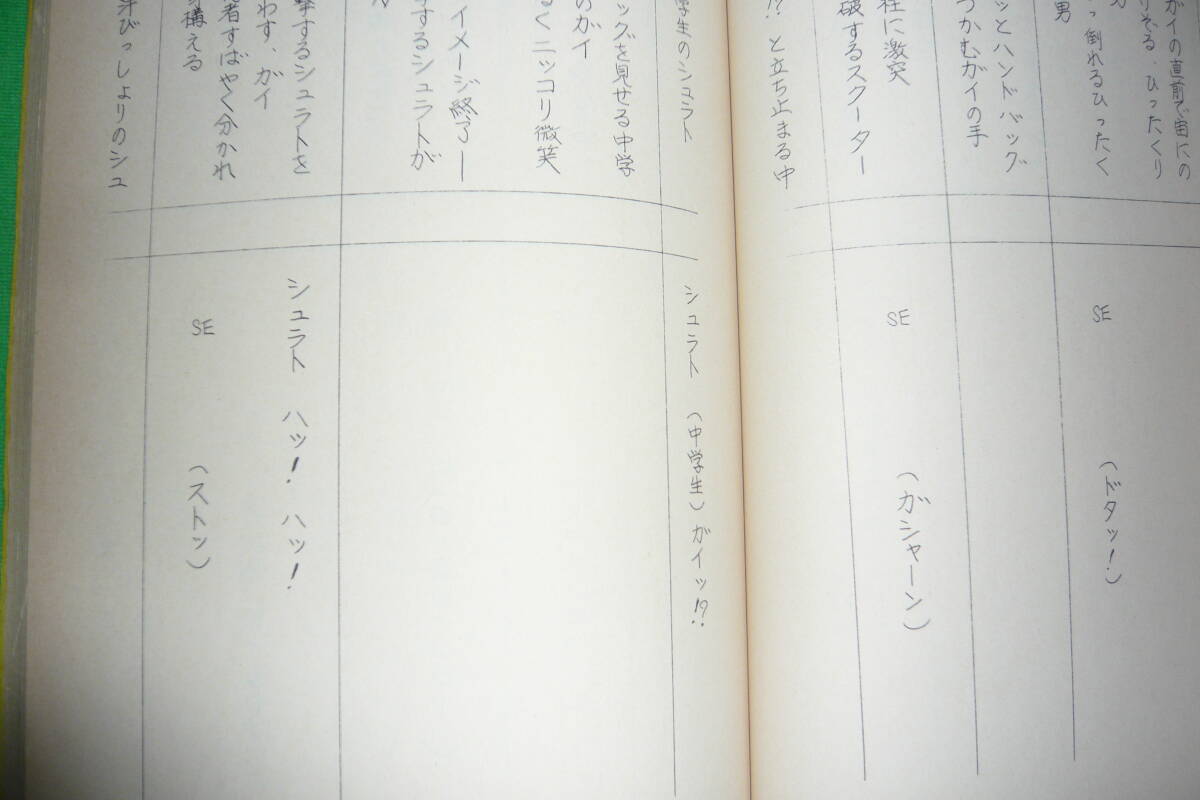 ガイの直前で宙にの
りぞる、ひったくり
っ倒れるひったく
男
SE (ドタッ!)
ッとハンドバッグ
つかむガイの手
柱に激突
破するスクーター
SE (ガシャーン)
!? と立ち止まる中
学生のシュラト
シュラト (中学生)ガイッ!?
ッグを見せる中学
のガイ
るくニッコリ微笑
イメージ終了—
するシュラトが
撃するシュラトを
わす、ガイ
シュラト ハッ! ハッ!
者すばやく分かれ
構える
SE (ストン)
汗びっしょりのシュ